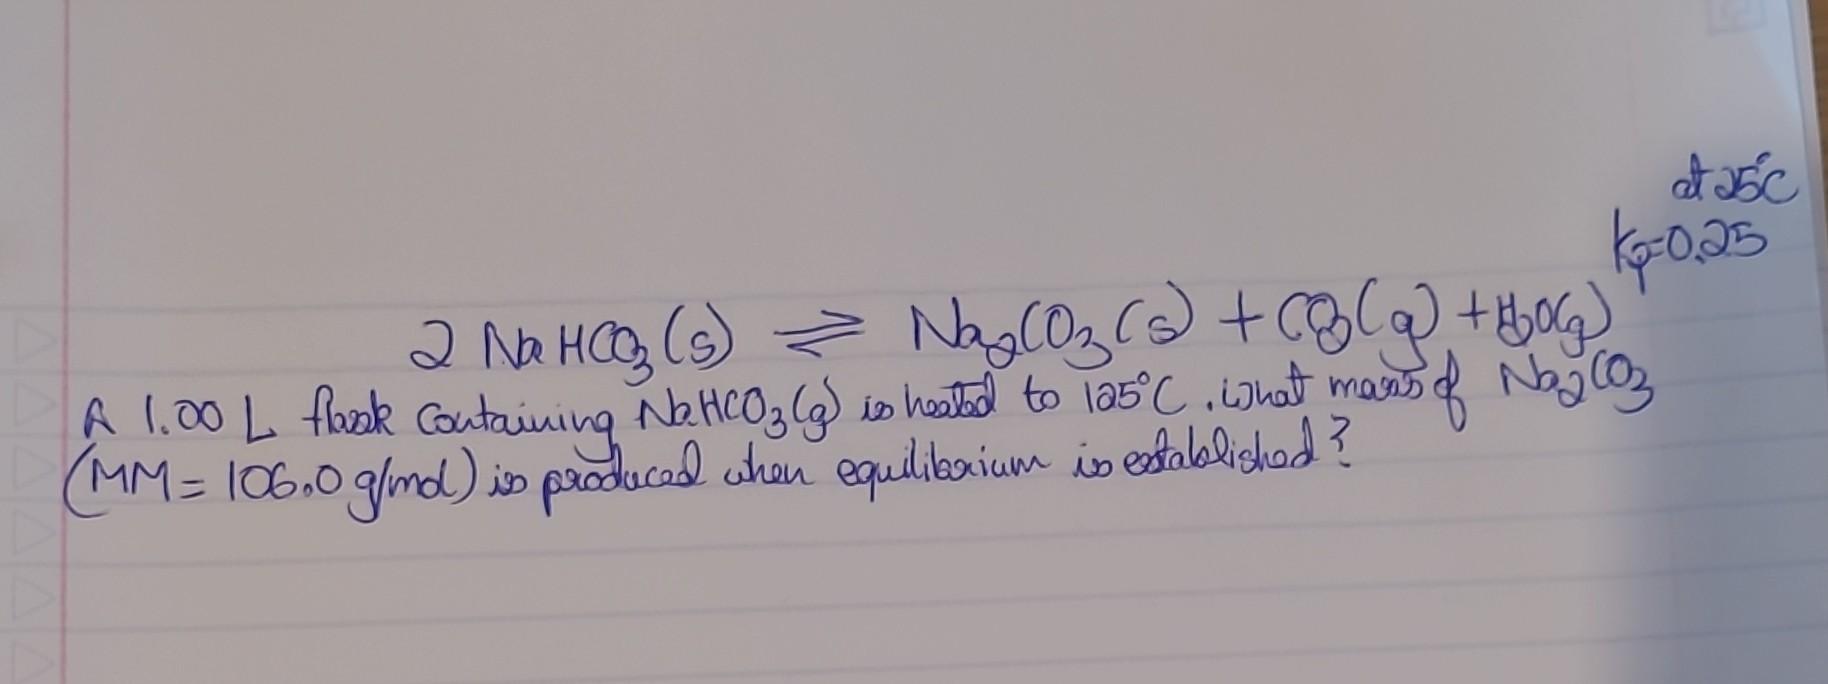 at 25°C
Kp=0.25
2 NaHCO3(s) ⇌ Na2CO3(s) + CO2(g) + H2O(g)
A 1.00 L flask containing NaHCO3(g) is heated to 125°C. What mass of Na2CO3
(MM = 106.0 g/mol) is produced when equilibrium is established?